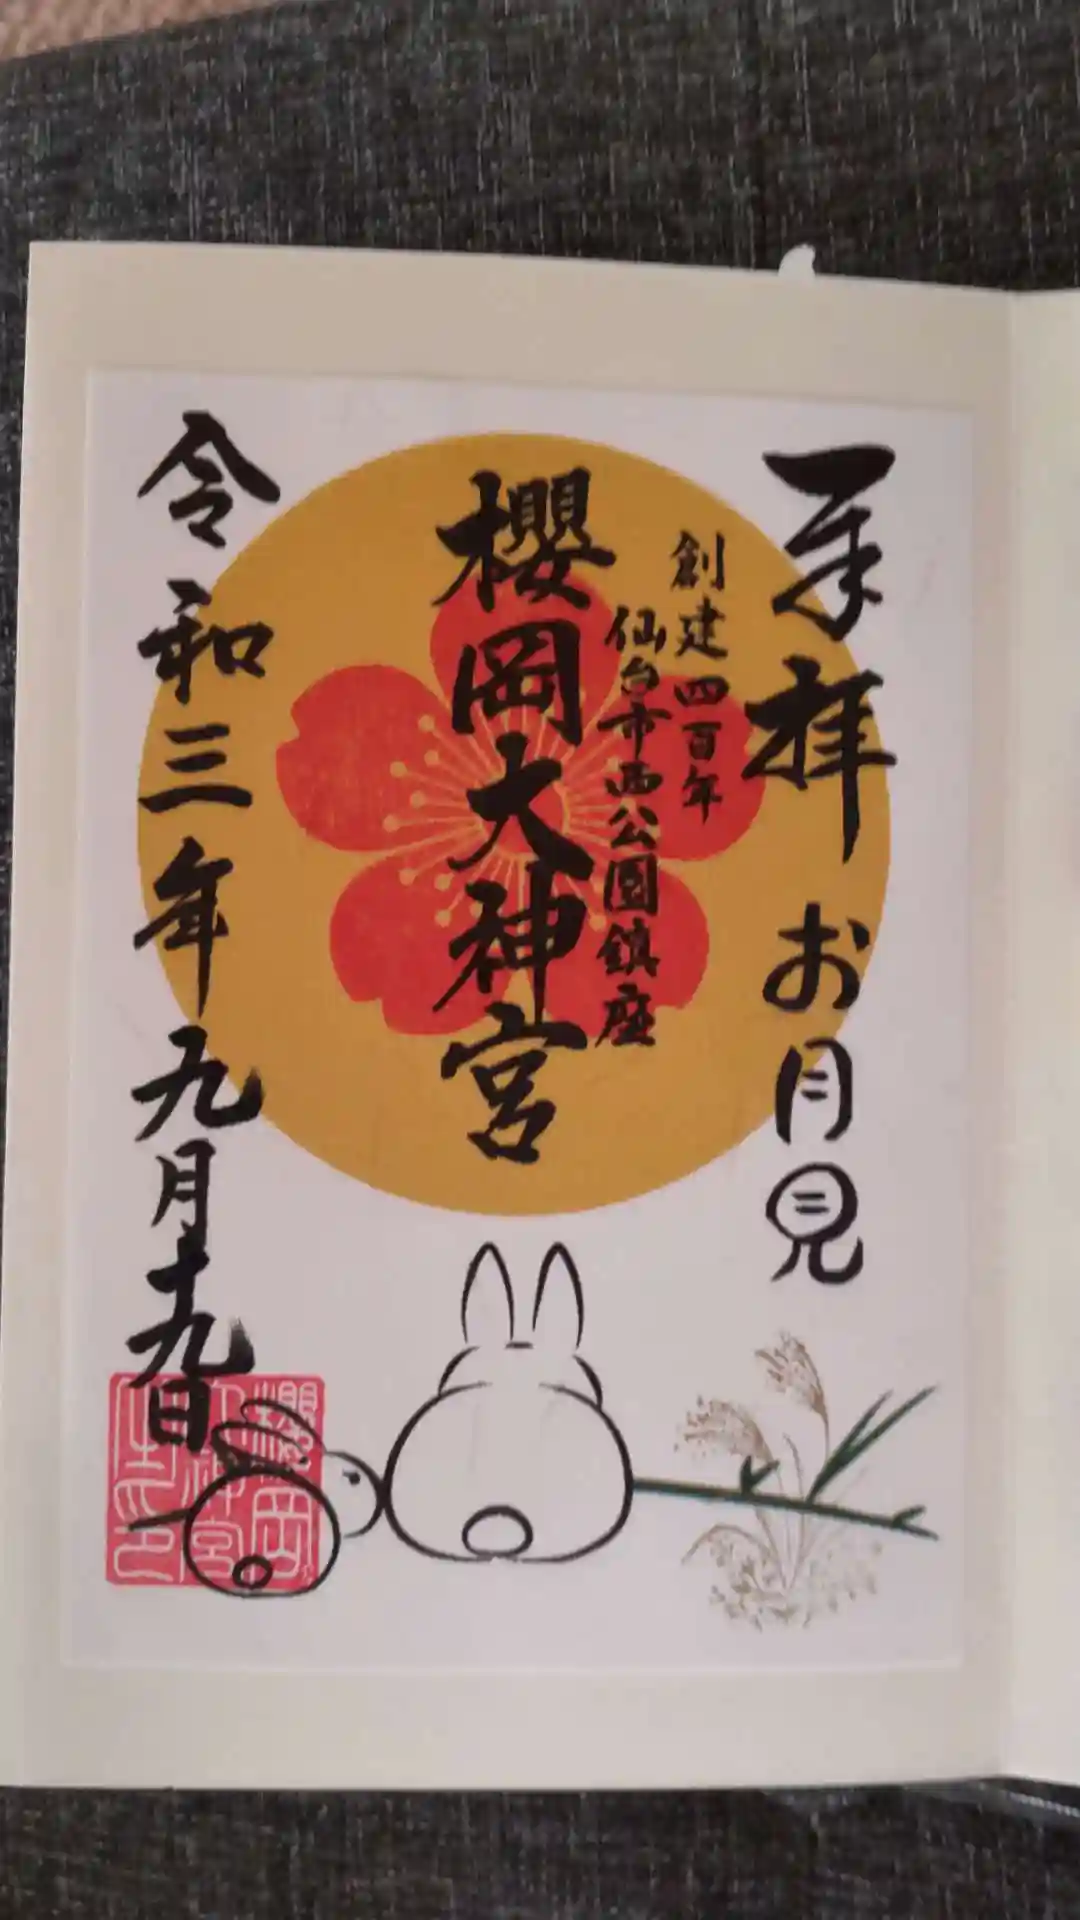 奉拝 お月見
創建四百年
仙台市西公園鎮座
櫻岡大神宮
令和三年九月十九日
櫻岡
大神宮
之印